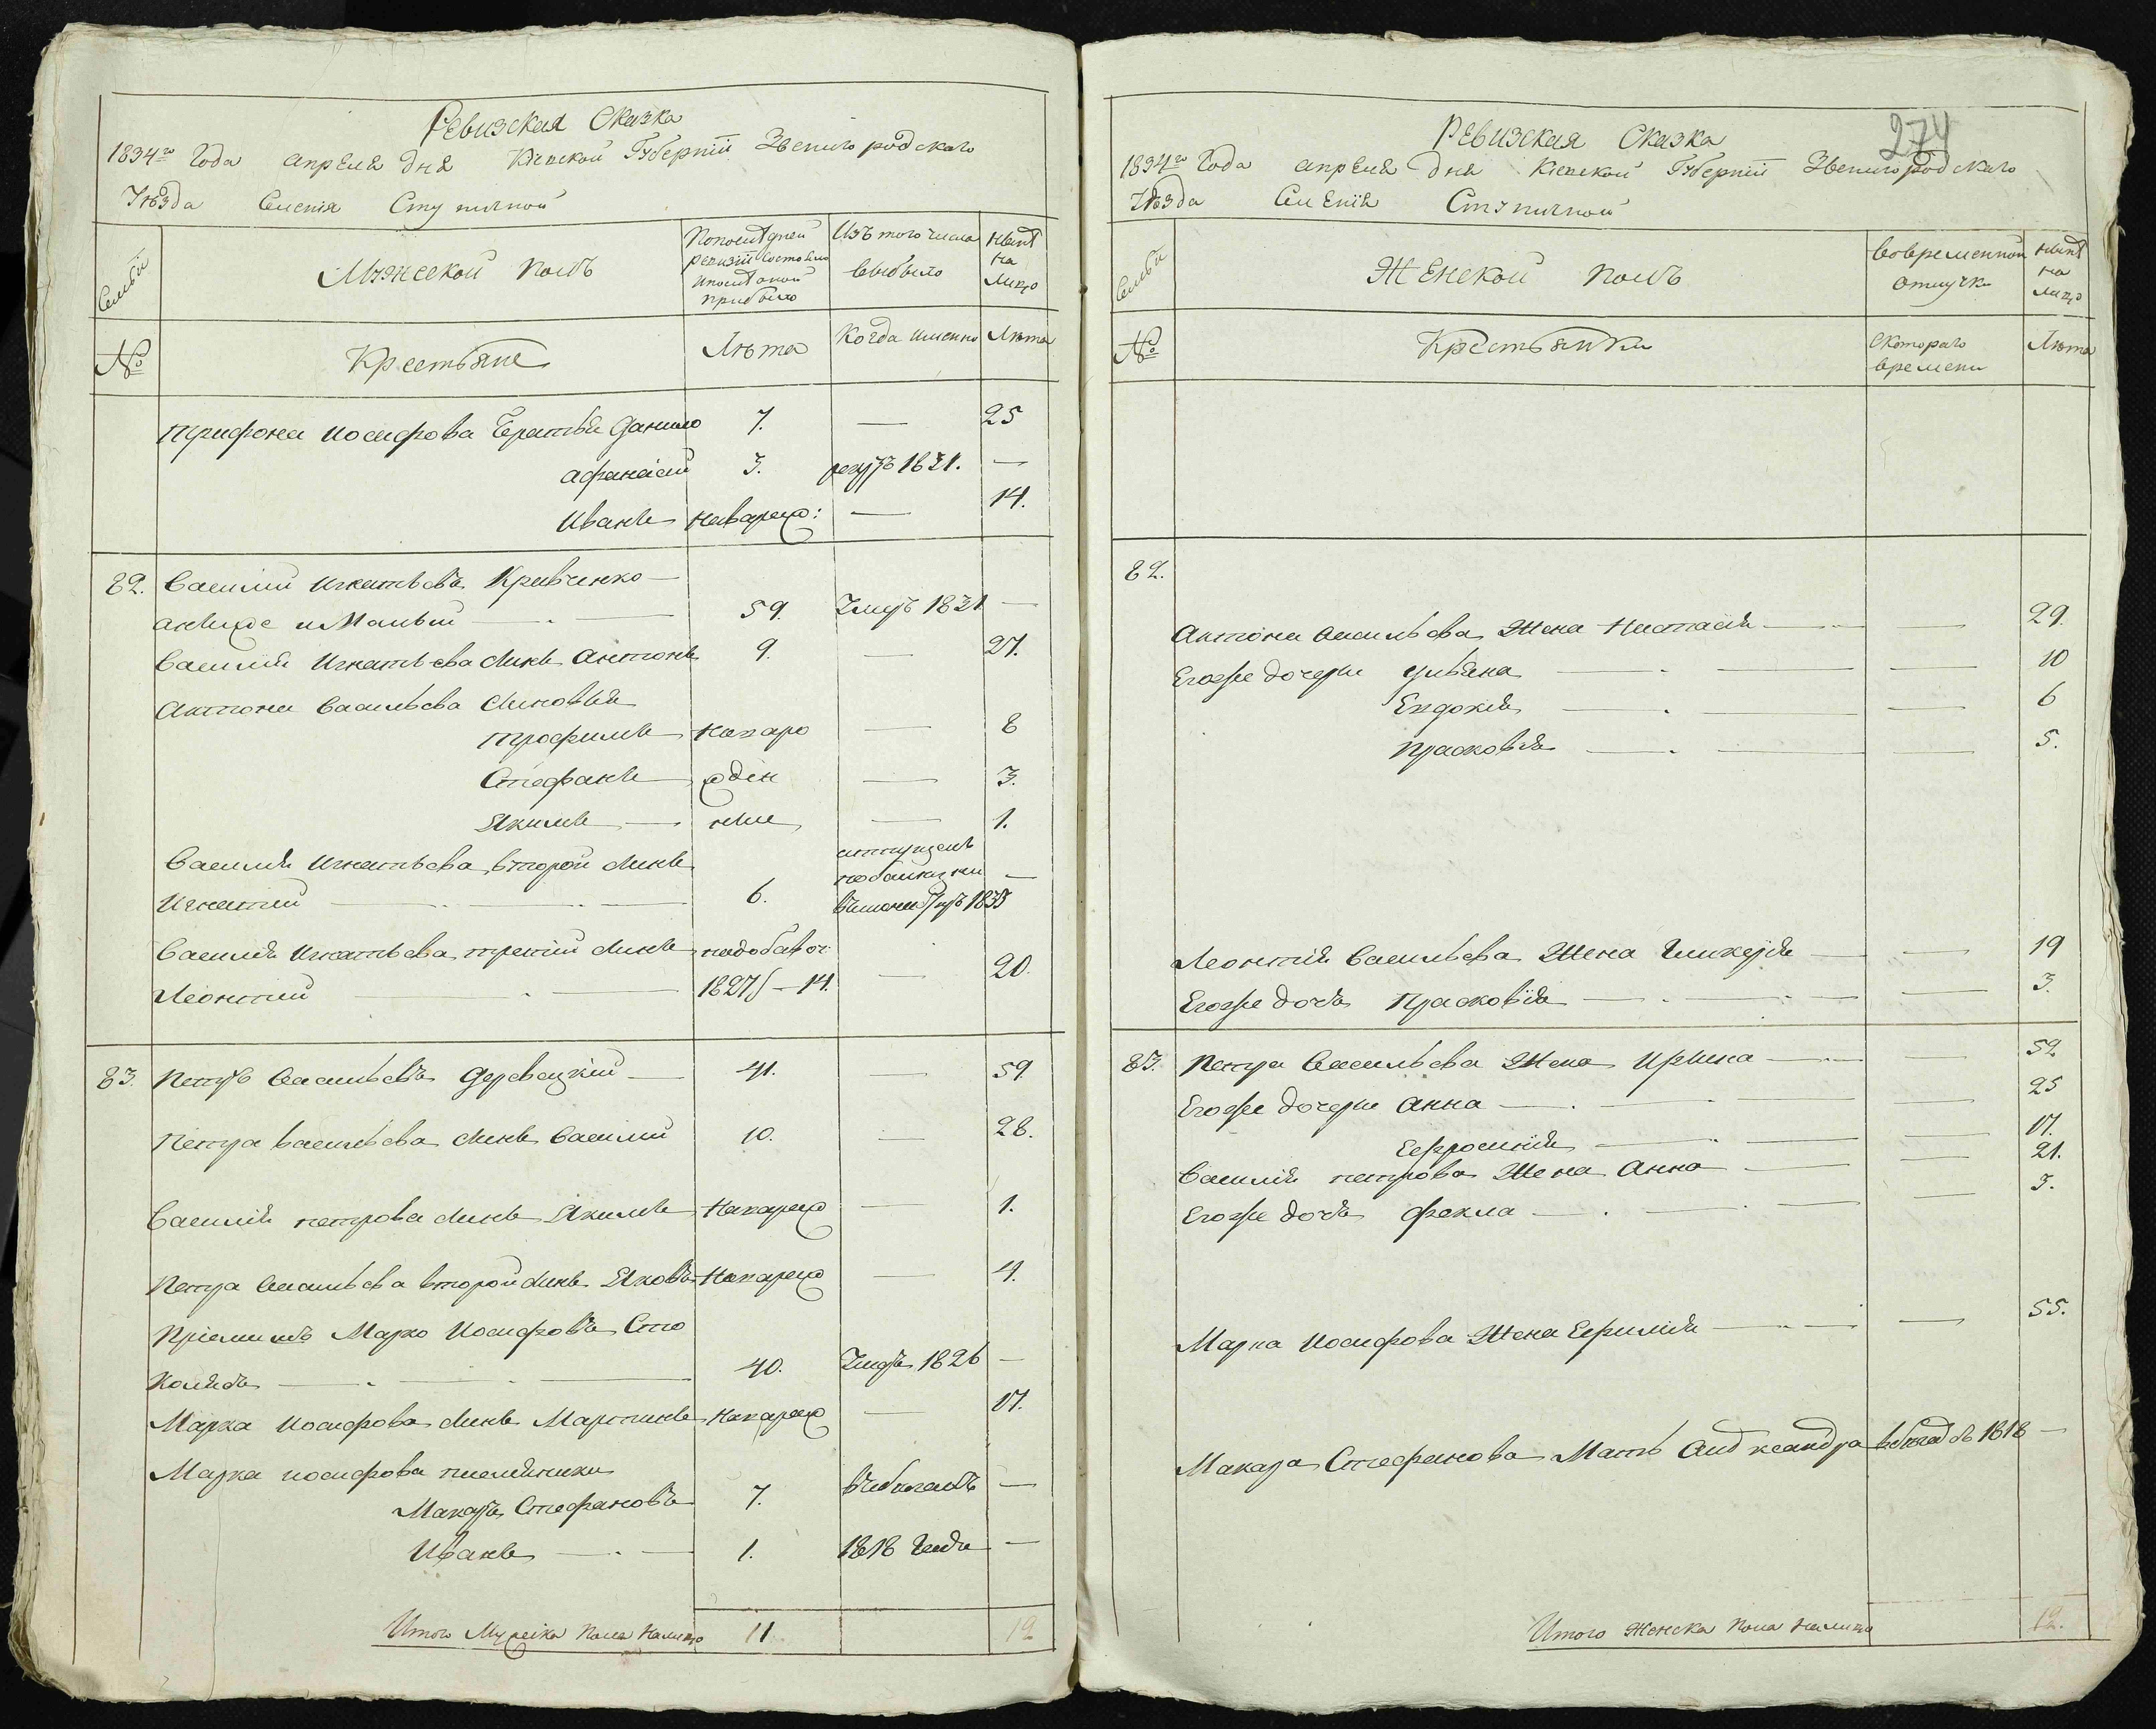 Ревизская Сказка
1834го Года апреля дня Кіевской Губерніи Звенигородскаго
Уѣзда Селенія Ступичной
Семьи
Мужеской полъ
По последней ревизіи состояло и после оной прибыло
Изъ того числа выбыло
Ныне на лицо
№
Крестьяне
Лѣта
Когда именно
Лѣта
Трифона Іосифова Братья Данило 7. — 25
Афанасій 3. рекрутъ 1831. —
Иванъ новорож: — 14.
82. Василій Игнатьевъ Кривченко —
59. Умеръ 1831 —
Василія Игнатьева Сынъ Антонъ 9. — 27.
Антона Васильева Сыновья
Трофимъ Новаро — 8
Стефанъ жден — 3.
Якимъ — ные — 1.
Василія Игнатьева второй Сынъ
Игнатій 6. 1833 —
Василія Игнатьева третій Сынъ
Леонтій 1827 — 14. — 20.
83. Петръ Васильевъ Деревецкій — 41. — 59.
Петра Васильева Сынъ Василій 10. — 28.
Василія Петрова Сынъ Якимъ Новорож — 1.
Петра Васильева второй Сынъ Яковъ Новорож — 4.
Пріемышъ Марко Іосифовъ Сто
колясъ 40. Умеръ 1826 —
Марка Іосифова Сынъ Мартинъ Новорож — 17.
Марка Іосифова племянники
Макаръ Стефановъ 7. въ бегахъ —
Иванъ 1. 1818 Года —
Итого Мужеска Пола Налицо 11 12
274
Ревизская Сказка
1834го Года апреля дня Кіевской Губерніи Звенигородскаго
Уѣзда Селенія Ступичной
Семьи
Женской полъ
Во временной отлучке
Ныне на лицо
№
Крестьянки
С котораго времени
Лѣта
82.
Антона Васильева Жена Настасія — 29.
Его же дочери Ульяна — 10
Евдокія — 6
Прасковія — 5.
Леонтія Васильева Жена Гликерія — 19
Его же дочь Прасковія — 3.
83. Петра Васильева Жена Ирина — 52
Его же дочери Анна — 25
Ефросинія — 17.
Василія Петрова Жена Анна — 21.
Его же дочь Фекла — 3.
Марка Іосифова Жена Ефимія — 55.
Макара Стефанова Мать Александра въ бегахъ 1818 —
Итого Женска Пола Налицо 12.